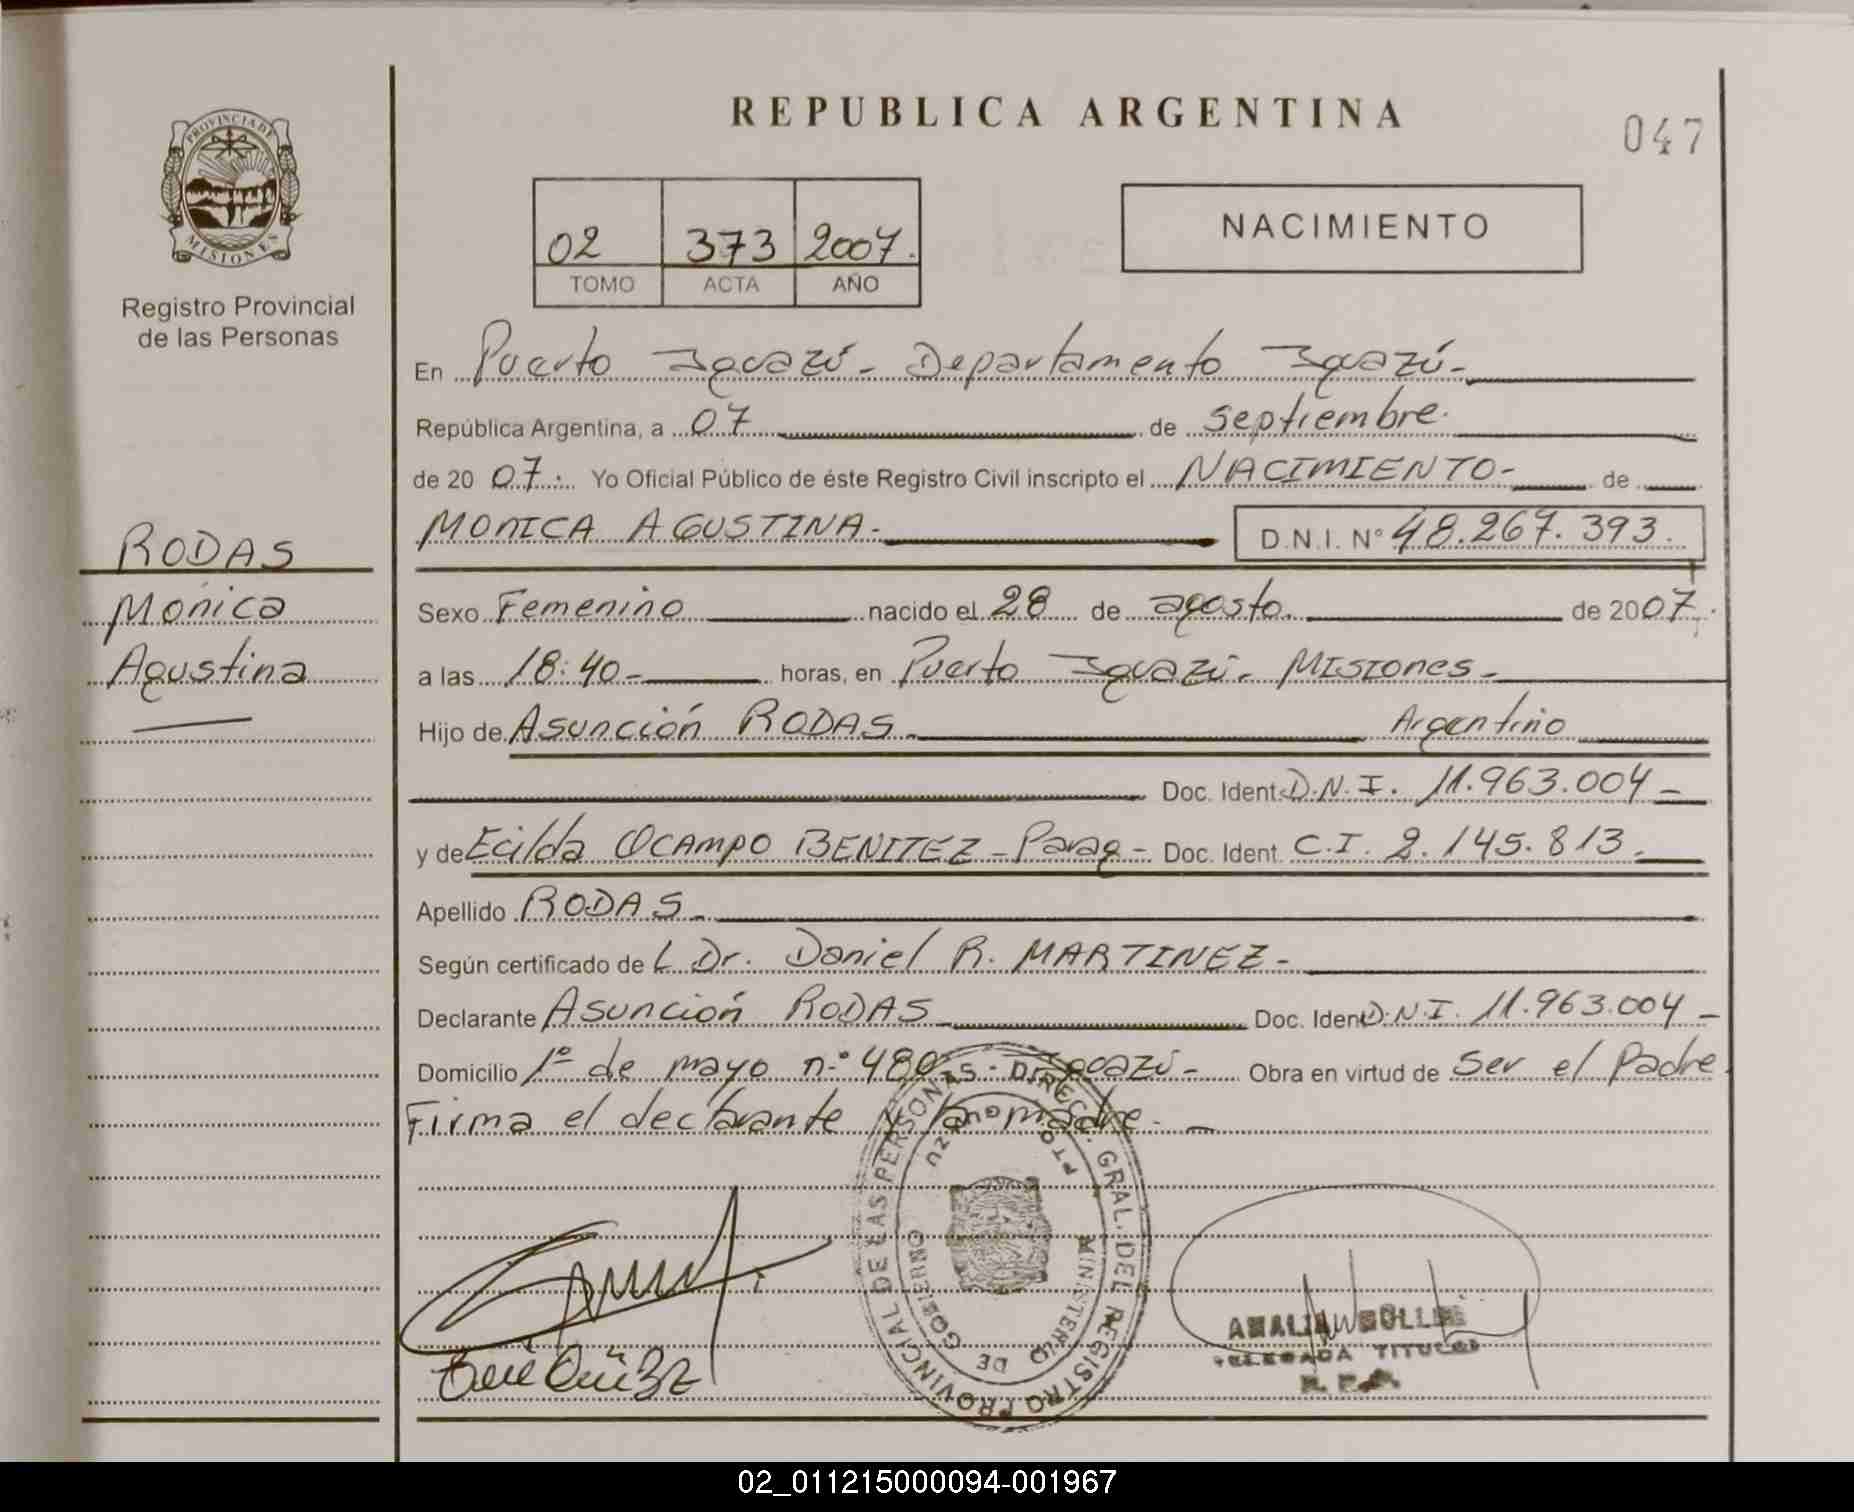 REPUBLICA ARGENTINA
047
PROVINCIA DE
MISIONES
Registro Provincial
de las Personas
02 373 2007.
TOMO ACTA AÑO
NACIMIENTO
En Puerto Iguazú - Departamento Iguazú -
República Argentina, a 07 de septiembre.
de 20 07. Yo Oficial Público de éste Registro Civil inscripto el NACIMIENTO - de
MONICA AGUSTINA. D.N.I. N° 48.267.393.
RODAS
Monica
Agustina
Sexo Femenino nacido el 28 de agosto. de 2007.
a las 18:40 - horas, en Puerto Iguazú - MISIONES -
Hijo de Asunción RODAS - Argentino
Doc. Ident. D.N.I. 11.963.004 -
y de Ecilda OCAMPO BENITEZ - Parag - Doc. Ident. C.I. 2.145.813.
Apellido RODAS -
Según certificado de L Dr. Daniel R. MARTINEZ -
Declarante Asunción RODAS - Doc. Ident. D.N.I. 11.963.004 -
Domicilio 1º de mayo n.º 480 - Iguazú - Obra en virtud de Ser el padre.
Firma el declarante y la madre. -
REGISTRO PROVINCIAL DE LAS PERSONAS - DIREC. GRAL. DEL
MINISTERIO DE GOBIERNO
PTO. IGUAZU
DELEGADA TITULAR
02_011215000094-001967